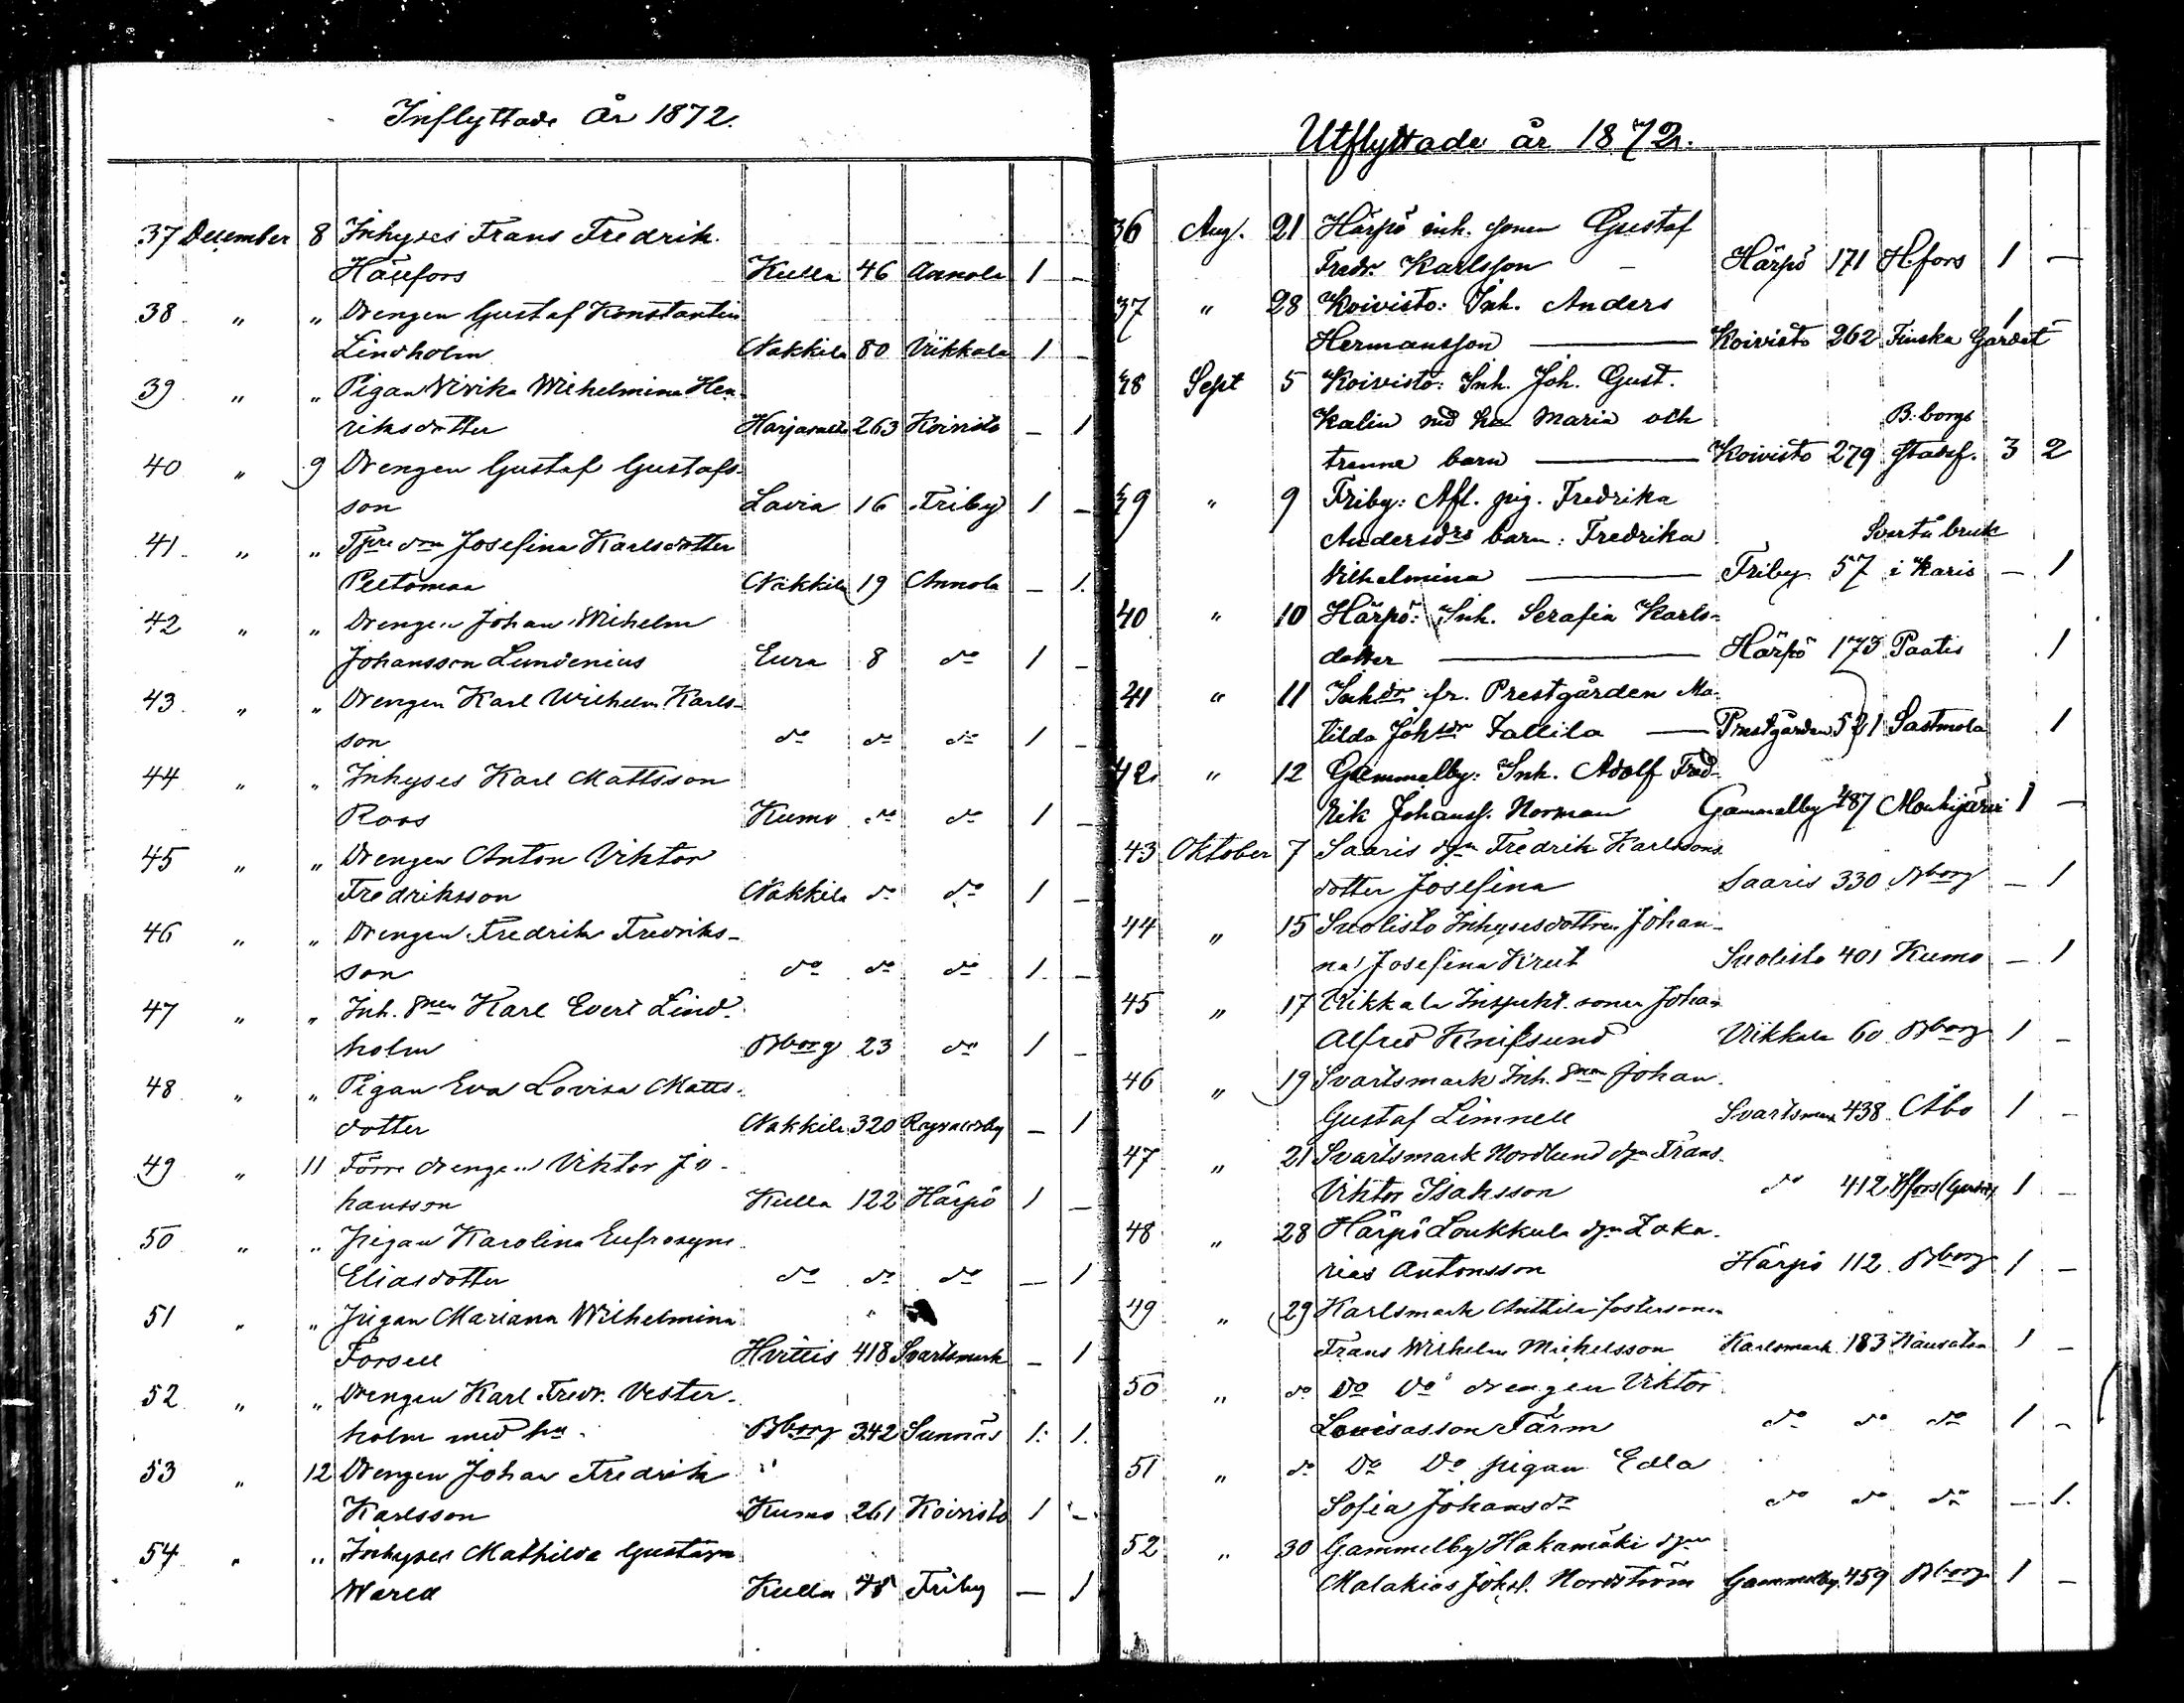 Inflyttade År 1872.
37 December 8 Inhyses Frans Fredrik
Hällfors Kulla 46 Annola 1 -
38 " " Drengen Gustaf Konstantin
Lindholm Nakkila 80 Viikkala 1 -
39 " " Pigan Vivika Wilhelmina Hen-
riksdotter Harjavalta 263 Koivisto - 1
40 " 9 Drengen Gustaf Gustafs-
son Lavia 16 Friby 1 -
41 " " Josefina Karlsdotter
Peltomaa Nakkila 19 Annola - 1
42 " " Drengen Johan Wilhelm
Johansson Lundenius Eura 8 do 1 -
43 " " Drengen Karl Wilhelm Karls-
son do do do 1 -
44 " " Inhyses Karl Mattsson
Roos Kumo do do 1 -
45 " " Drengen Anton Viktor
Fredriksson Nakkila do do 1 -
46 " " Drengen Fredrik Fredriks-
son do do do 1 -
47 " " Inh. snen Karl Evert Lind-
holm Bborg 23 do 1 -
48 " " Pigan Eva Lovisa Matts-
dotter Nakkila 320 Ragvaldsby - 1
49 " 11 Förre drengen Viktor Jo-
hansson Kulla 122 Härpö 1 -
50 " " Pigan Karolina Eufrosyne
Eliasdotter do do do - 1
51 " " Pigan Mariana Wilhelmina
Forsell Hvittis 418 Svartsmark - 1
52 " " Drengen Karl Fredr. Vester-
holm med hu Bborg 342 Sunnäs 1. 1.
53 " 12 Drengen Johan Fredrik
Karlsson Kumo 261 Koivisto 1 -
54 " " Inhyses Mathilda Gustava
Kulla 48 Friby - 1
Utflyttade år 1872.
36 Aug. 21 Härpö inh. sonen Gustaf
Fredr. Karlsson - Härpö 171 H.fors 1 -
37 " 28 Koivisto: Inh. Anders
Hermansson Koivisto 262 Finska Gardet 1
38 Sept 5 Koivisto: Inh. Joh. Gust.
Kalin med hu Maria och B:borgs
trenne barn Koivisto 279 stadsf. 3 2
39 " 9 Friby: Afl. pig. Fredrika
Andersdrs barn: Fredrika Svartå bruk
Vilhelmina Friby 57 i Karis - 1
40 " 10 Härpö: Inh. Serafia Karls-
dotter Härpö 173 Paatis 1
41 " 11 Inhdr fr. Prestgården Ma-
tilda Johsdr Tallila Prestgården 521 Sastmola 1
42 " 12 Gammelby: Inh. Adolf Fred-
rik Johanss. Norman Gammelby 487 Mouhijärvi 1 -
43 Oktober 7 Saaris dgn Fredrik Karlssons
dotter Josefina Saaris 330 Bborg - 1
44 " 15 Suolisto Inhysesdottren Johan-
na Josefina Krut Suolisto 401 Kumo - 1
45 " 17 Viikkala Inspekt. sonen Johan
Alfred Knifsund Viikkala 60 Bborg 1 -
46 " 19 Svartsmark Inh. snen Johan
Gustaf Limnell Svartsmark 438 Åbo 1 -
47 " 21 Svartsmark Nordlund dgn Frans
Viktor Isaksson do 412 Hfors (Gardet) 1 -
48 " 28 Härpö Loukkula dgn Zaka-
rias Antonsson Härpö 112 Bborg 1 -
49 " 29 Karlsmark Anttila fostersonen
Frans Wilhelm Michelsson Karlsmark 183 1 -
50 " do Do Do drengen Viktor
Lovisasson Färm do do do 1 -
51 " do Do Do pigan Edla
Sofia Johansdr do do do - 1.
52 " 30 Gammelby Hakamäki dgn
Malakias Johss. Nordström Gammelby 459 Bborg 1 -